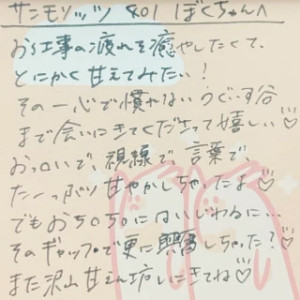 サンモリッツ 401 ぼくちゃんへ
お仕事の疲れを癒やしたくて、
とにかく甘えてみたい！
その一心で慣れないうぐいす谷
まで会いにきてくださって嬉しい♡
おっ〇いで、視線で、言葉で、
たーっぷり甘やかしちゃったよ♡
でもおち〇ち〇にはいじわるに…
そのギャップで更に興奮しちゃった？♡
また沢山甘えん坊しにきてね♡